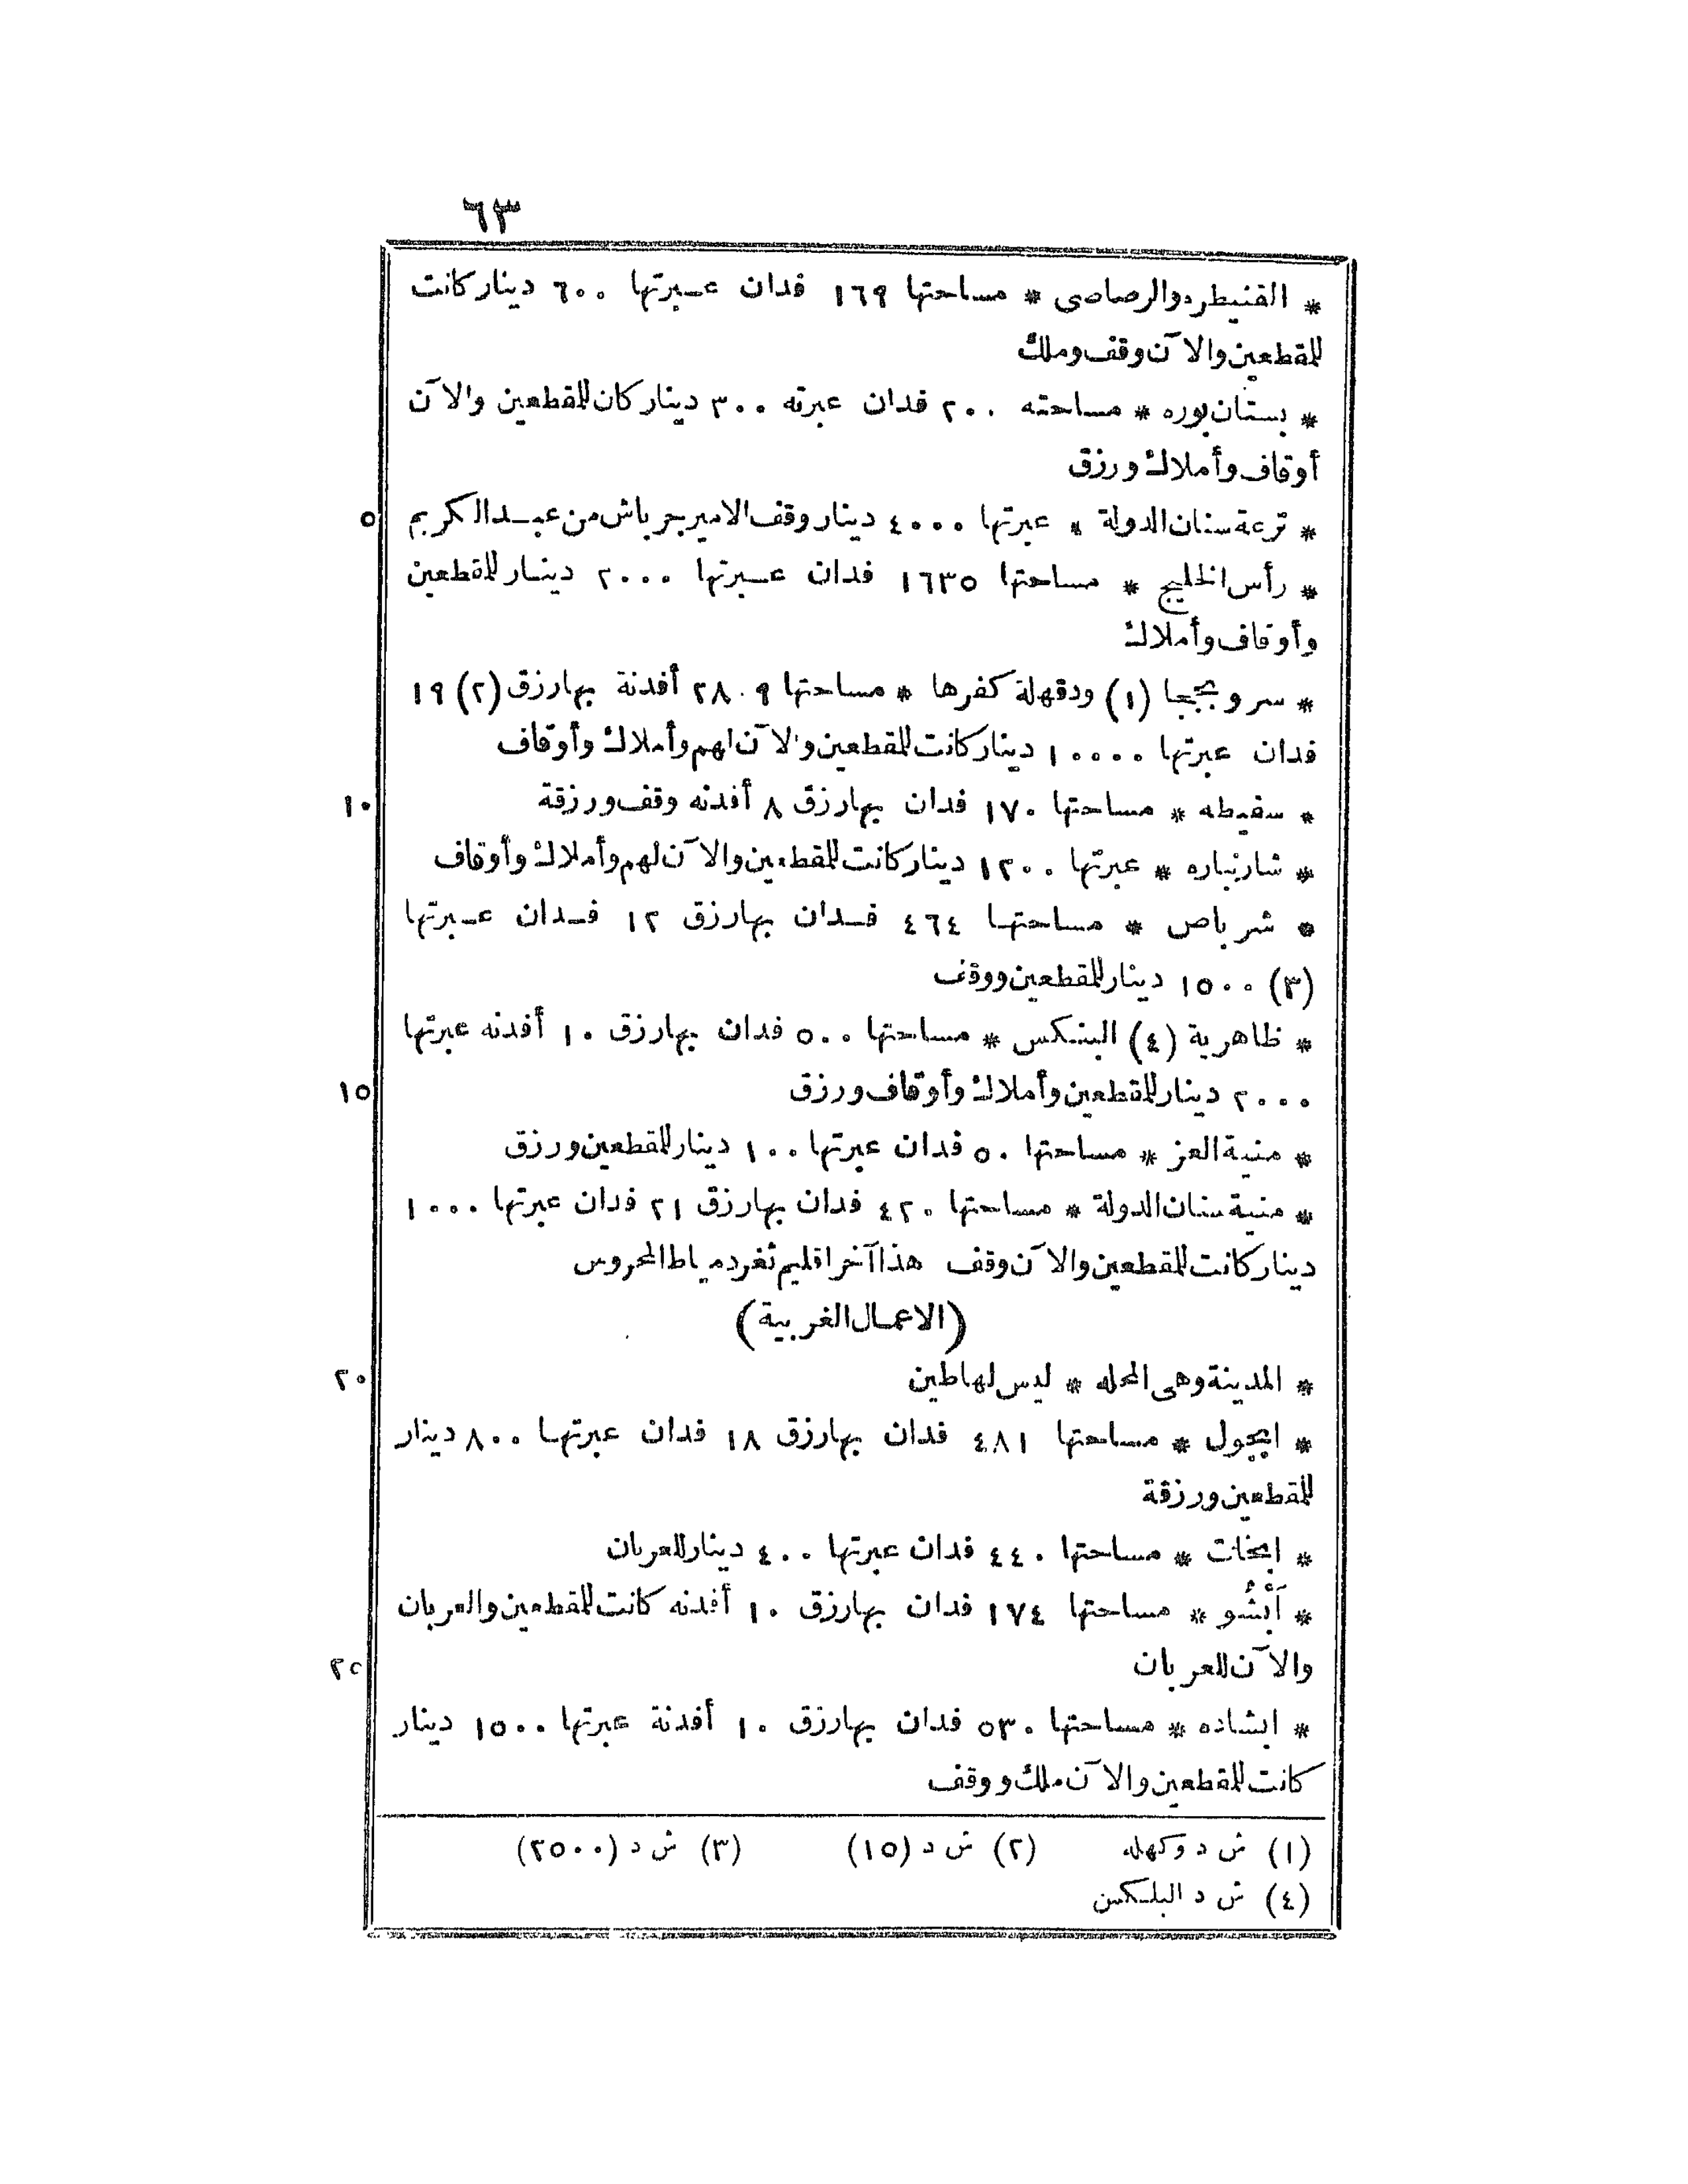 ٦٣
* القنيطره والرصاصى * مساحتها ١٦٩ فدان عبرتها ٦٠٠ دينار كانت
للمقطعين والآن وقف وملك
* بستان بوره * مساحته ٢٠٠ فدان عبرته ٣٠٠ دينار كان للمقطعين والآن
أوقاف وأملاك ورزق
* ترعة سنان الدولة * عبرتها ٤٠٠٠ دينار وقف الامير جرباش من عبد الكريم ٥
* رأس الخليج * مساحتها ١٦٣٥ فدان عبرتها ٢٠٠٠ دينار للمقطعين
وأوقاف وأملاك
* سرو بججا (١) ودقهلة كفرها * مساحتها ٢٨٠٩ أفدنة بها رزق (٢) ١٩
فدان عبرتها ١٠٠٠٠ دينار كانت للمقطعين والآن لهم وأملاك وأوقاف
* سفيطه * مساحتها ١٧٠ فدان بها رزق ٨ أفدنه وقف ورزقة ١٠
* شارنباره * عبرتها ١٢٠٠ دينار كانت للمقطعين والآن لهم وأملاك وأوقاف
* شرباص * مساحتها ٤٦٤ فدان بها رزق ١٢ فدان عبرتها
(٣) ١٥٠٠ دينار للمقطعين ووقف
* ظاهرية (٤) البنكس * مساحتها ٥٠٠ فدان بها رزق ١٠ أفدنه عبرتها
٢٠٠٠ دينار للمقطعين وأملاك وأوقاف ورزق ١٥
* منية العز * مساحتها ٥٠ فدان عبرتها ١٠٠ دينار للمقطعين ورزق
* منية سنان الدولة * مساحتها ٤٢٠ فدان بها رزق ٢١ فدان عبرتها ١٠٠٠
دينار كانت للمقطعين والآن وقف هذا آخر اقليم ثغر دمياط المحروس
(الاعمال الغربية)
* المدينة وهى المحله * ليس لها طين ٢٠
* ابيجول * مساحتها ٤٨١ فدان بها رزق ١٨ فدان عبرتها ٨٠٠ دينار
للمقطعين ورزقة
* ابخات * مساحتها ٤٤٠ فدان عبرتها ٤٠٠ دينار للعربان
* اَبْشُو * مساحتها ١٧٤ فدان بها رزق ١٠ أفدنه كانت للمقطعين والعربان
والآن للعربان ٢٥
* ابشاده * مساحتها ٥٣٠ فدان بها رزق ١٠ أفدنة عبرتها ١٥٠٠ دينار
كانت للمقطعين والآن ملك ووقف
(١) ش د وكهله (٢) ش د (١٥) (٣) ش د (٢٥٠٠)
(٤) ش د البلسكس